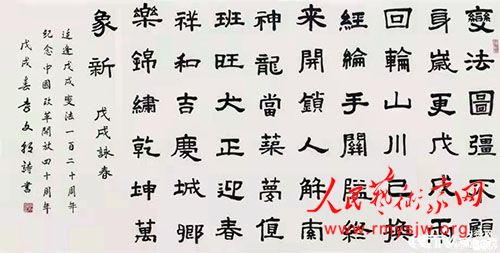 變法圖彊不顧
身歲更戊戌兩
回輪山川已換
經綸手關隘終
來開鎖人解索
神龍當築夢值
班旺犬正迎春
祥和吉慶城鄉
樂錦繡乾坤萬
象新 戊戌詠春
適逢戊戌變法一百二十周年
紀念中國改革開放四十周年
戊戌春 文 詩書
人民藝術家网
www.rmysjw.org